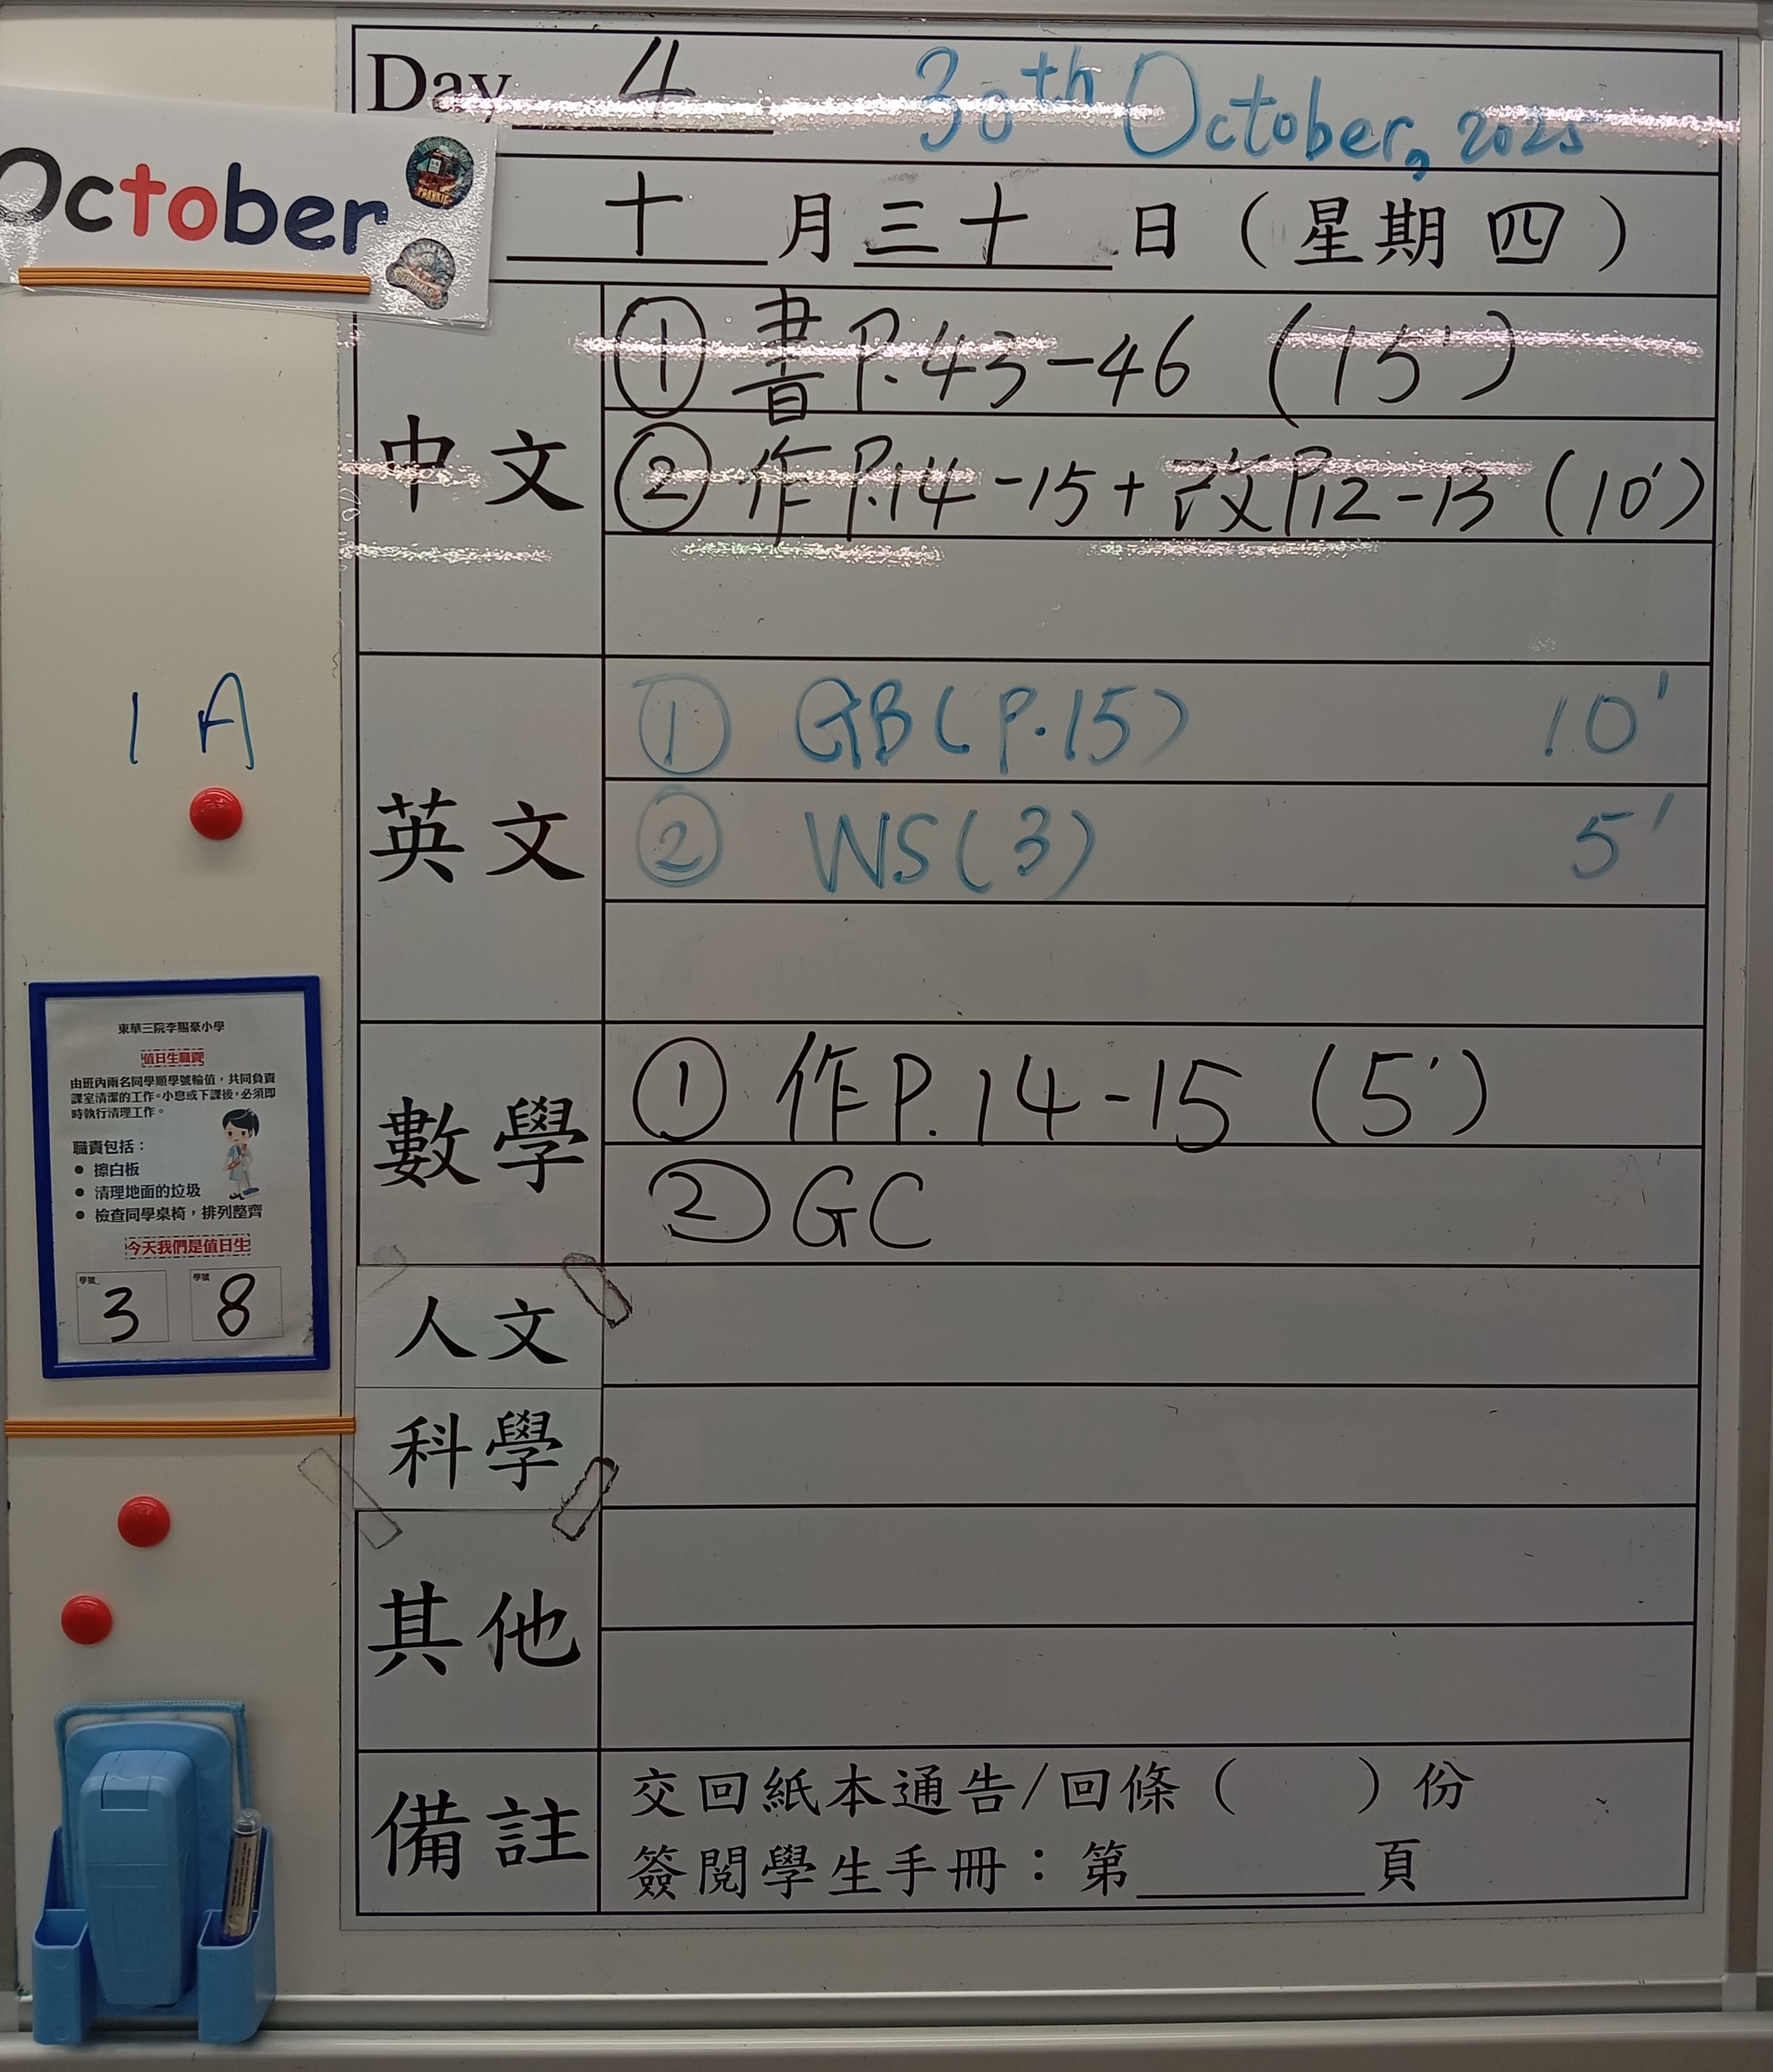 Day 4 30th October, 2025
October
十 月 三十 日（星期 四）
中文
① 書 P.43-46 (15')
② 作 P.14-15 + 改 P.12-13 (10')
1A
英文
① GB(P.15) 10'
② WS(3) 5'
數學
① 作 P.14-15 (5')
② GC
人文
科學
其他
備註
交回紙本通告/回條（　　）份
簽閱學生手冊：第______頁
東華三院李賜豪小學
值日生職責
由班內兩名同學順學號輪值，共同負責
課室清潔的工作。小息或下課後，必須即
時執行清理工作。
職責包括：
● 擦白板
● 清理地面的垃圾
● 檢查同學桌椅，排列整齊
今天我們是值日生
學號 3 學號 8